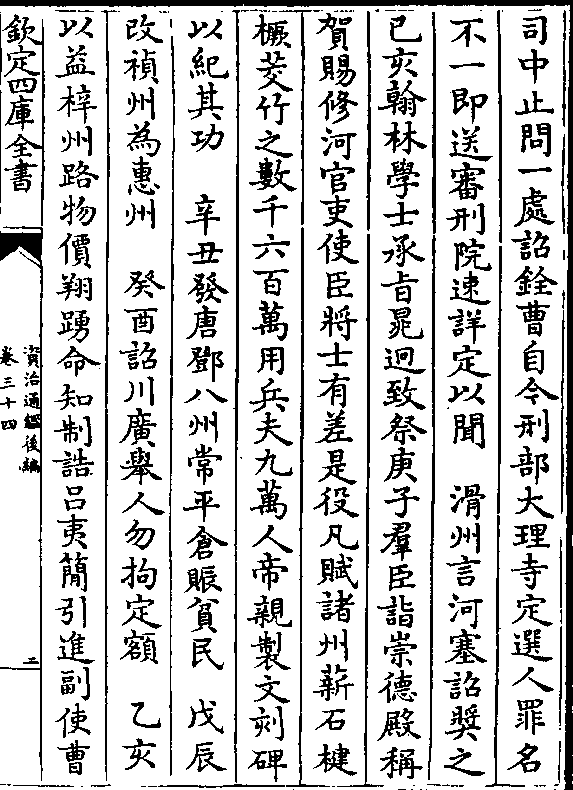 司中止問一處詔銓曹自今刑部大理寺定選人罪名
不一即送審刑院速詳定以聞　滑州言河塞詔獎之
己亥翰林學士承旨晁迥致祭庚子羣臣詣崇德殿稱
賀賜修河官吏使臣將士有差是役凡賦諸州薪石楗
橛茭竹之數千六百萬用兵夫九萬人帝親製文刻碑
以紀其功　辛丑發唐鄧八州常平倉賑貧民　戊辰
改禎州為惠州　癸酉詔川廣舉人勿拘定額　乙亥
以益梓州路物價翔踴命知制誥呂夷簡引進副使曹
欽定四庫全書
資治通鑑後編
卷三十四
二